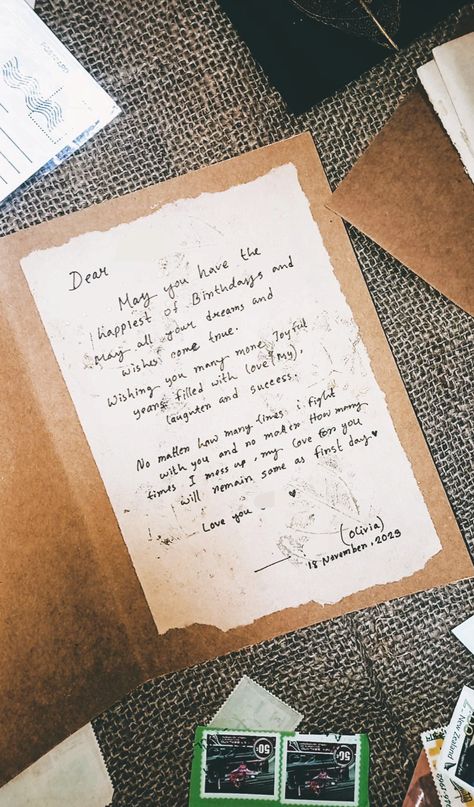 Dear
May you have the
happiest of Birthdays and
May all your dreams and
wishes come true.
Wishing you many more Joyful
years filled with love (My),
laughter and success.
No matter how many times i fight
with you and no matter How many
times I mess up, my love for you
will remain same as first day ♥
Love you ♥
(Olivia)
18 November, 2023
50c
50c
New Zealand